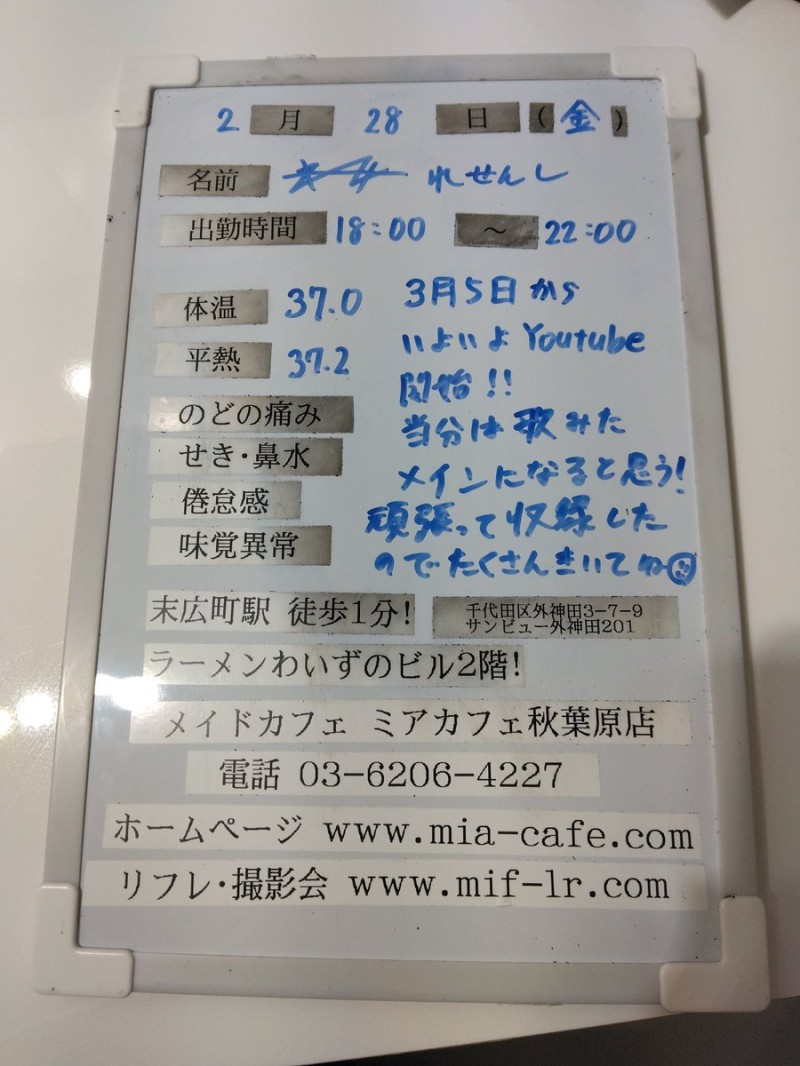 2 月 28 日 (金)
名前 れせんし
出勤時間 18:00 ～ 22:00
体温 37.0
平熱 37.2
のどの痛み
せき・鼻水
倦怠感
味覚異常
3月5日から
いよいよ Youtube
開始!!
当分は歌みた
メインになると思う!
頑張って収録した
のでたくさんきいてね
末広町駅 徒歩1分!
千代田区外神田3-7-9
サンビュー外神田201
ラーメンわいずのビル2階!
メイドカフェ ミアカフェ秋葉原店
電話 03-6206-4227
ホームページ www.mia-cafe.com
リフレ・撮影会 www.mif-lr.com